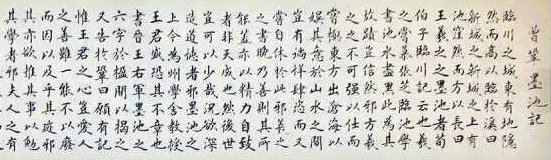 曾鞏墨池記
臨川之城東有地隱
然而高以臨於溪曰
新城新城之上有
池窪然而方以長曰
王羲之之墨池者荀
伯子臨川記云也羲
之嘗慕張芝臨池學
書池水盡黑此為其
故蹟豈信然邪方羲
之之不可強以仕而
嘗極東方出滄海以
娛其意於山水之間
豈其徜徉肆恣而又
嘗自休於此邪羲之
之書晚乃善則其所
能蓋亦以精力自致
者非天成也然後世
豈可以少哉況欲深
造道德者邪墨池之
上今為州學舍教授
王君盛恐其不章也
書晉王右軍墨池之
六字於楹間以揭之
又告於鞏曰願有記
惟王君之心豈愛人
之善雖一能不以廢
而因以及乎其跡邪
其亦欲推其事以勉
其學者邪夫人之有